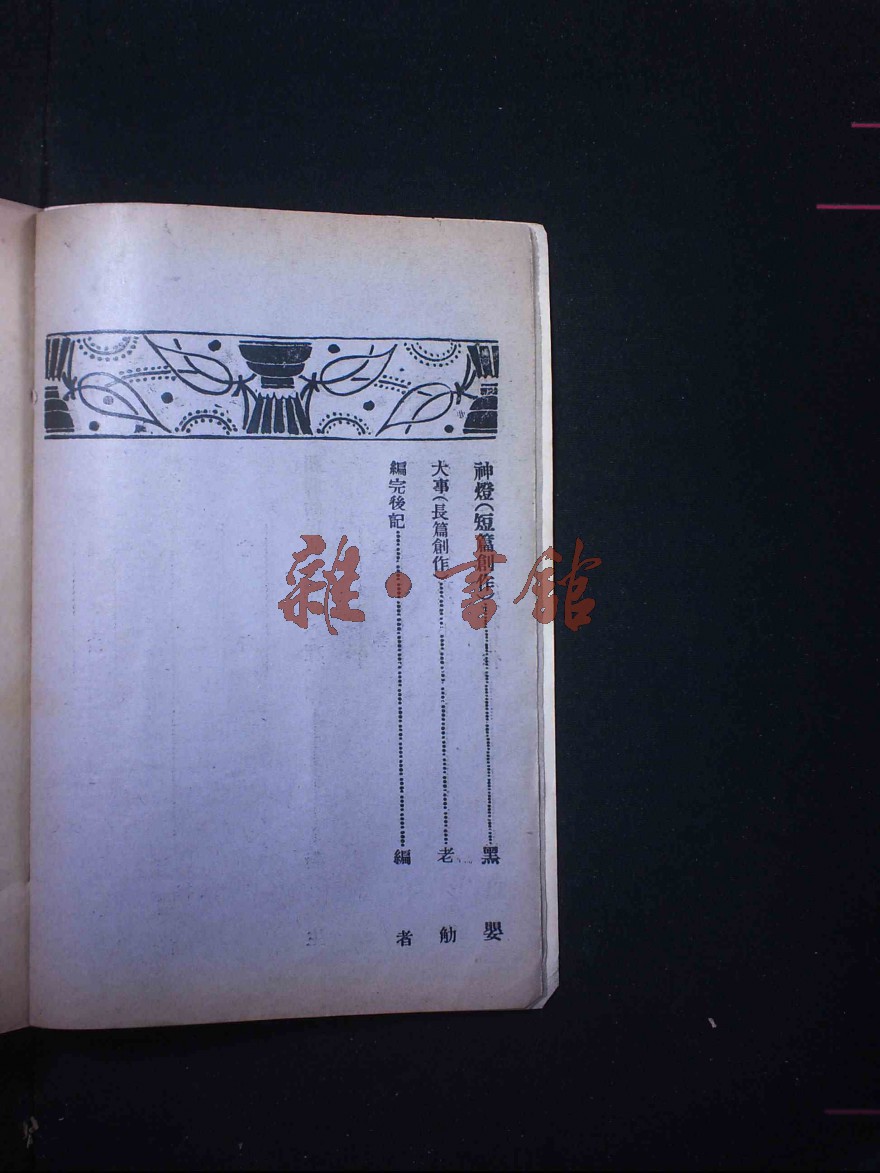 神燈(短篇創作)……黑嬰
大事(長篇創作……老舢
編完後記……編者
雜·書館